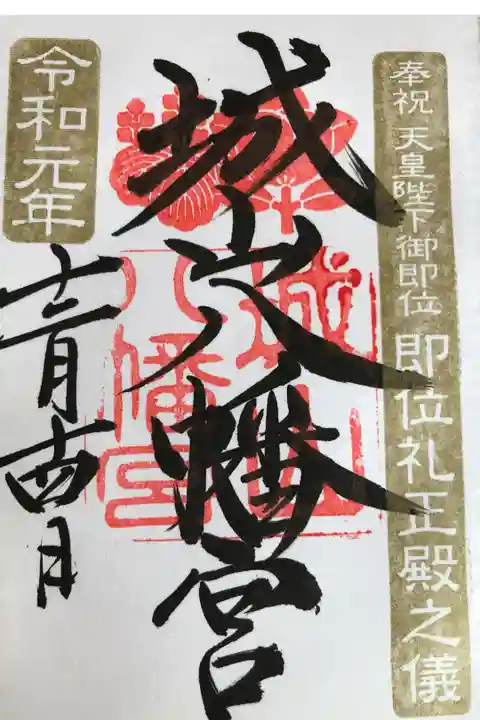 奉祝 天皇陛下御即位 即位礼正殿之儀
城山八幡宮
城山
八幡宮
令和元年
十二月十四日